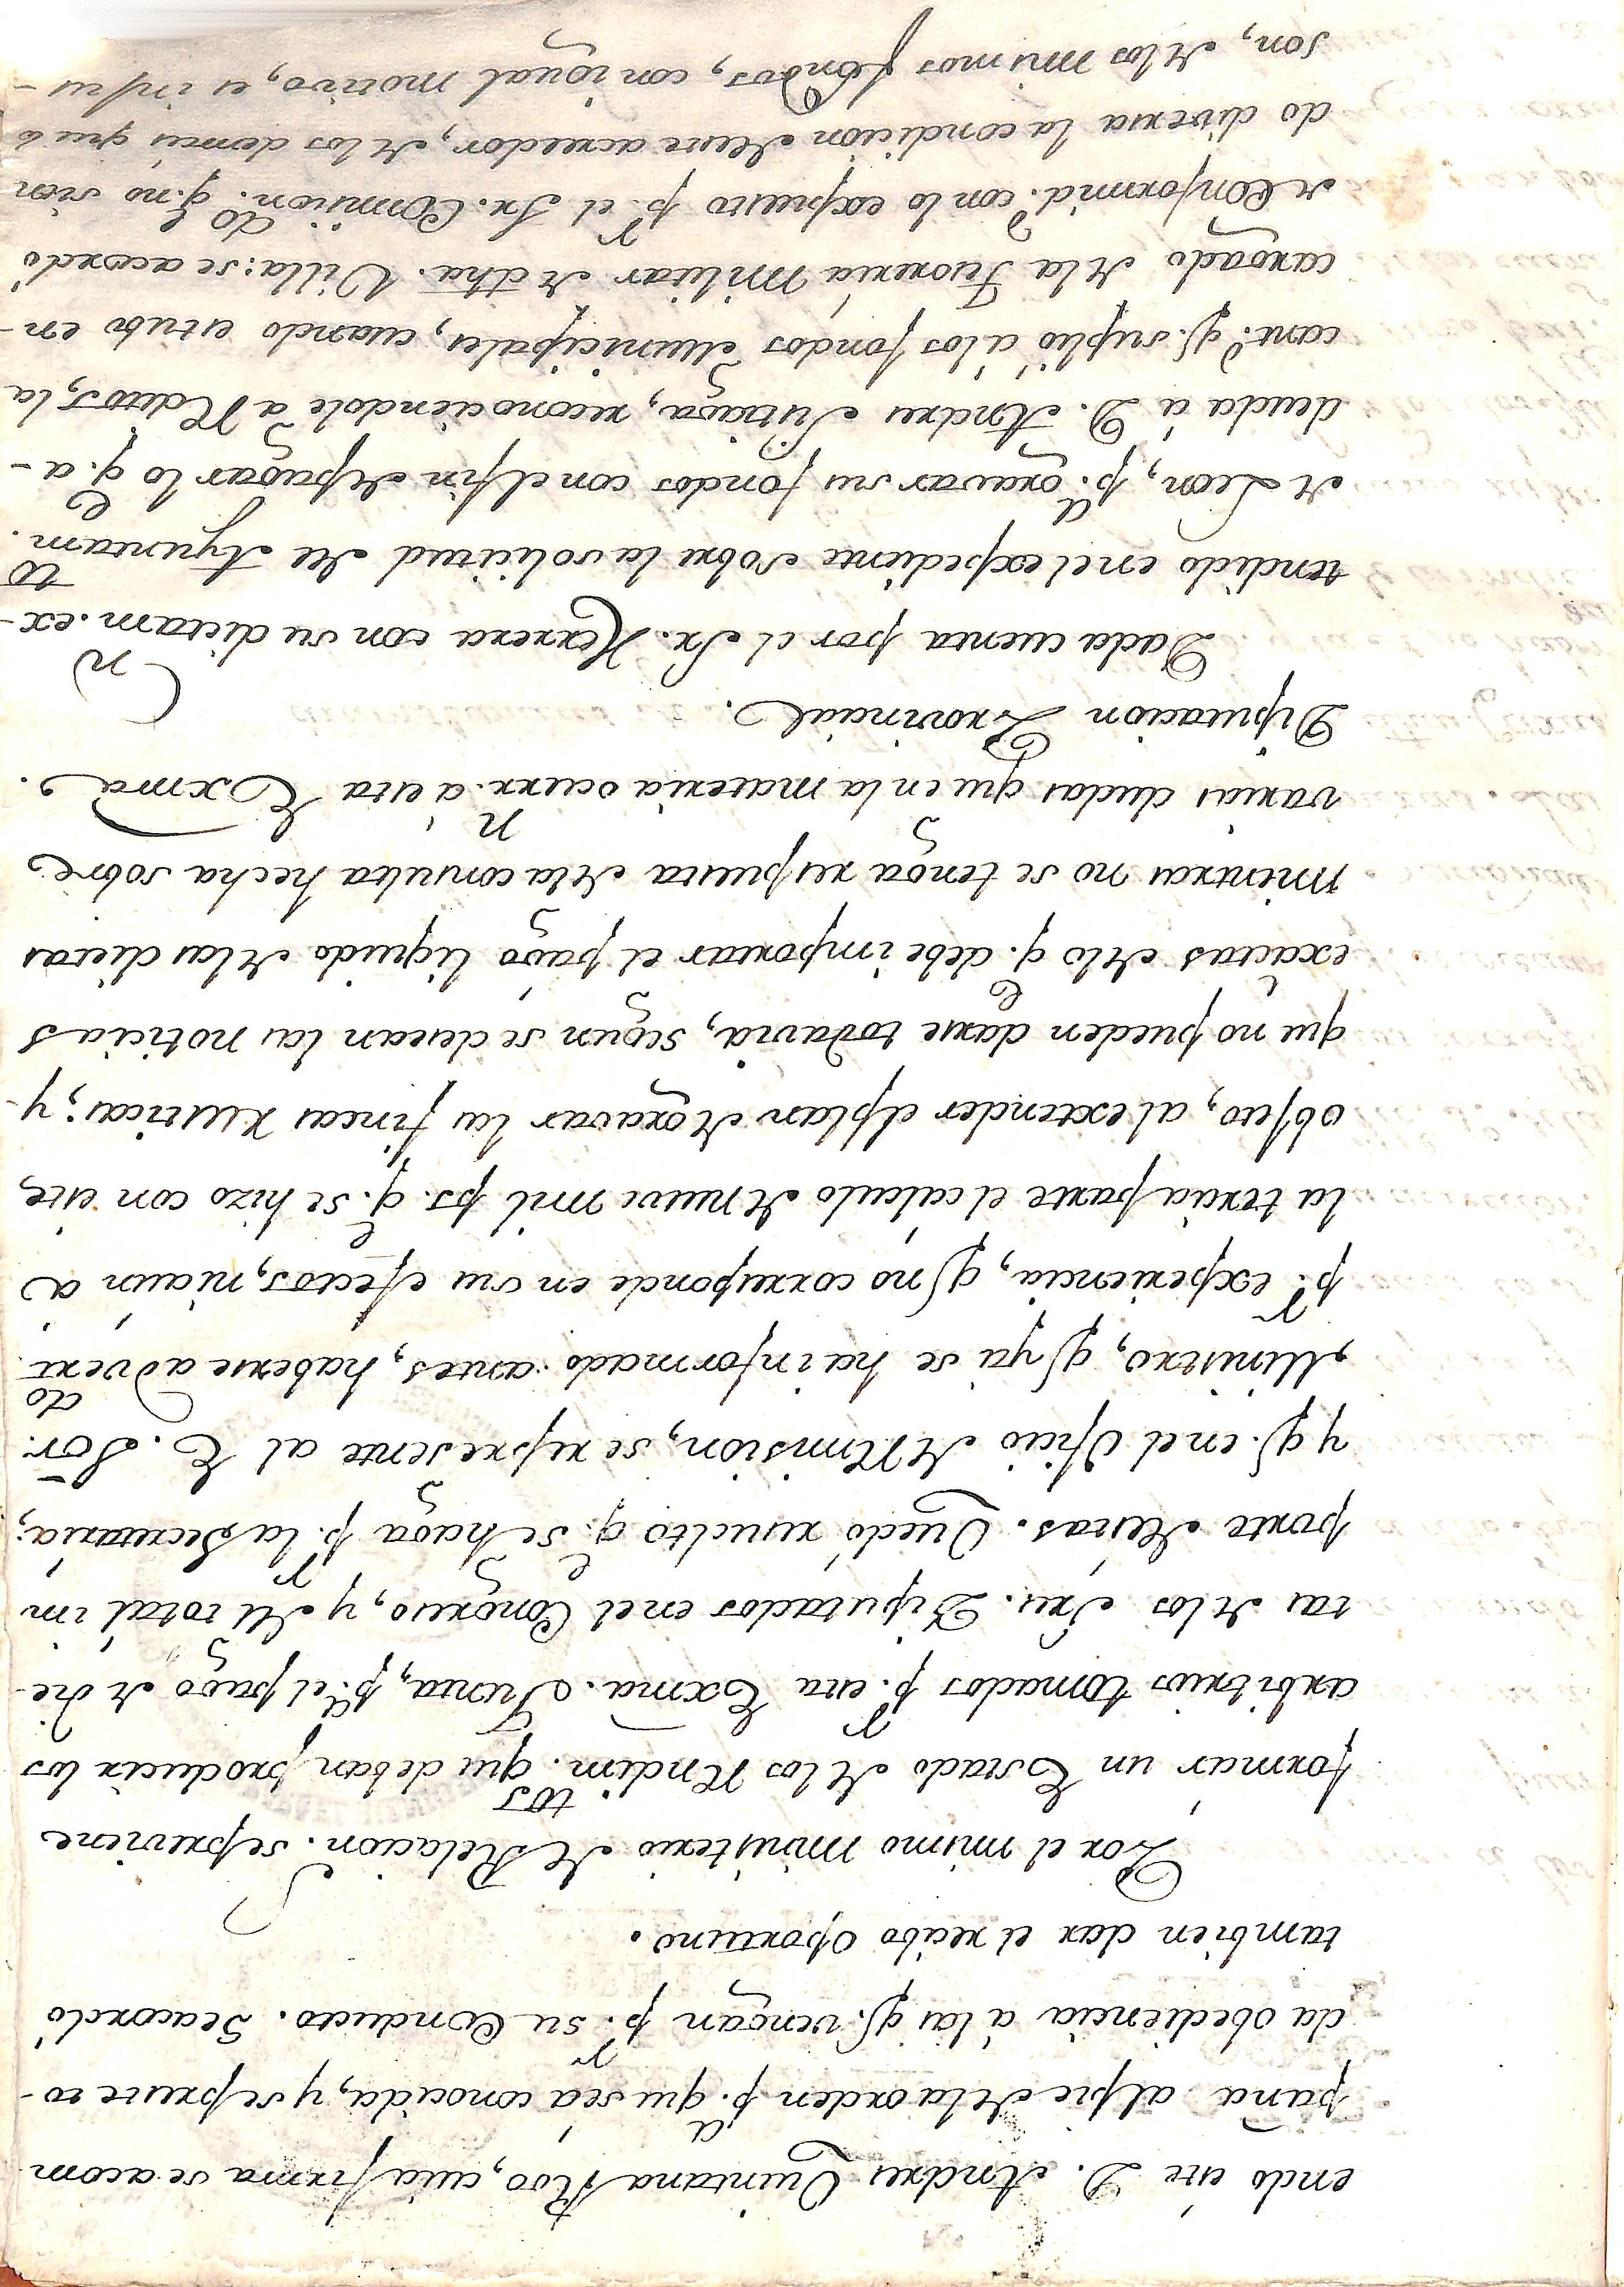 endo éste D. Andres Quintana Róo, cuia firma se acom
paña al pie de la orden p.ª que séa conocida, y se preste to-
da obediencia á las q.e vengan p.r su Conducto. Se acordó
tambien dar el recibo oportuno.
Por el mismo Ministerio de Relacion.s se previene
formár un Estado de los Rendim.tos que deban producir los
arbitrios tomados p.r esta Exma. Junta, p.ª el págo de die-
tas de los Sres. Diputados en el Congreso, y del total im
porte de éstas. Quedó resuelto q.e se haga p.r la Secretaría;
y q.e en el Oficio de Remision, se represente al E. Sor.
Ministro, q.e ya se ha informado antes, haberse advert.do
p.r experiencia, q.e no corresponde en sus efectos, ni aún á
la tercia parte el cálculo de nueve mil ps. q.e se hizo con éste
objeto, al extender el plan de gravar las fincas rusticas; y
que no pueden darse todavia, segun se desean las noticias
exáctas de lo q.e debe importar el págo liquido de las dietas
mientras no se tenga respuesta de la consulta hecha sobre
varias dudas que en la materia ocurr.n á esta Exma.
Diputacion Provincial.
Dada cuenta por el Sr. Herrera con su dictam.n ex-
tendido en el expediente sobre la solicitud del Ayuntam.to
de Leon, p.ª gravar sus fondos con el fin de pagar lo q.e a-
deuda á D. Andres , reconociendole a Reditos, la
cant.d q.e suplió á los fondos Municipales, cuando estubo en-
cargado de la Tesoreria Militar de dha. Villa: se acordó
de Conformid.d con lo expuesto p.r el Sr. Comision.do q.e no sien
do diversa la condicion de este acreedor, de los demás que lo
son, de los mismos fondos, con igual motivo, es injus-